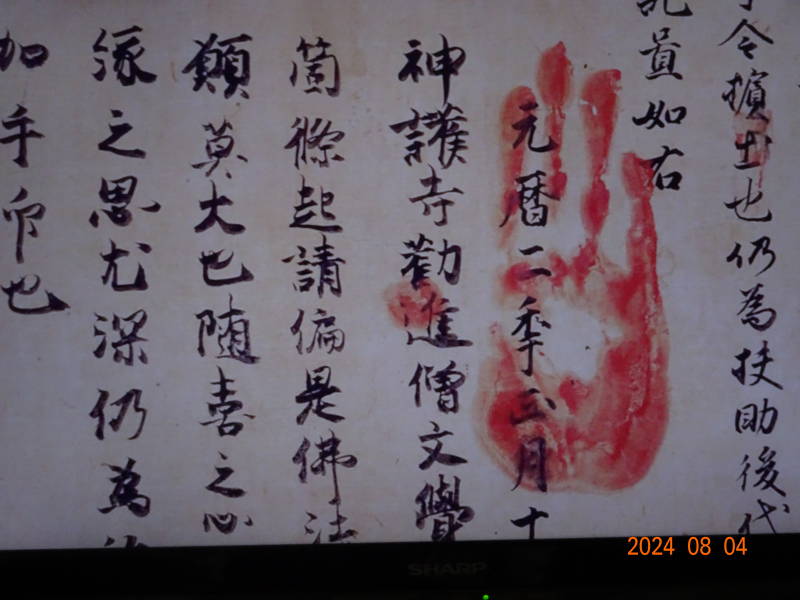 記置如右
令擯出也仍為扶助後代
元暦二季正月十
神護寺勸進僧文覺
箇條起請偏是佛法
願莫大也随喜之心
縁之思尤深仍為
加手印也
SHARP
2024 08 04